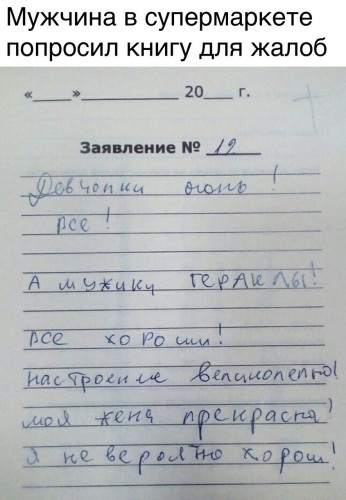 Мужчина в супермаркете
попросил книгу для жалоб
«____»__________ 20___ г.
Заявление № 12
Девчонки огонь!
все!
А мужики ГЕРАКЛЫ!
все хороши!
настроение великолепно!
моя жена прекрасна!
Я не вероятно хорош!